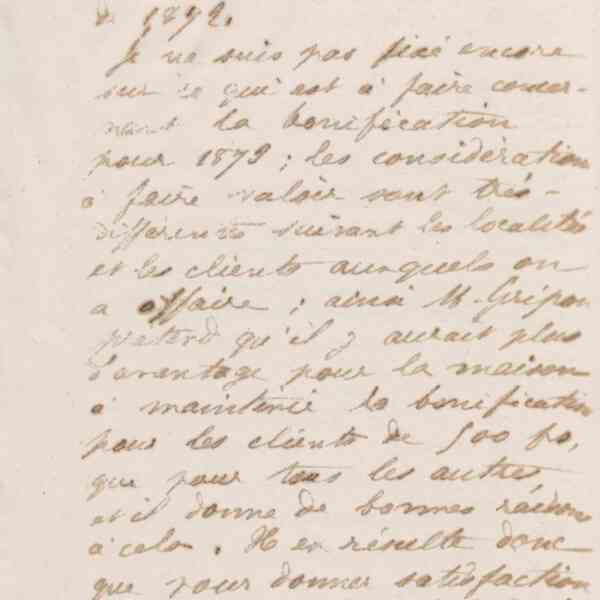 1872.
Je ne suis pas fixé encore
sur ce qui est à faire concer-
nant la bonification
pour 1879 ; les considérations
à faire valoir sont très-
différentes suivant les localités
et les clients auxquels on
a affaire ; ainsi M. Gripon
prétend qu'il y aurait plus
d'avantage pour la maison
à maintenir la bonification
pour les clients de 500 fo,
que pour tous les autres,
et il donne de bonnes raisons
à cela. Il en résulte donc
que pour donner satisfaction